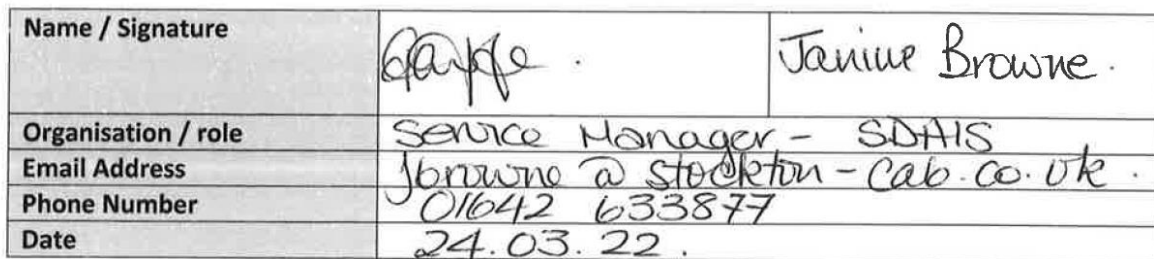 Name / Signature Janine Browne.
Organisation / role Service Manager - SDAIS
Email Address jbrowne @ stockton - cab.co.uk.
Phone Number 01642 633877
Date 24.03.22.